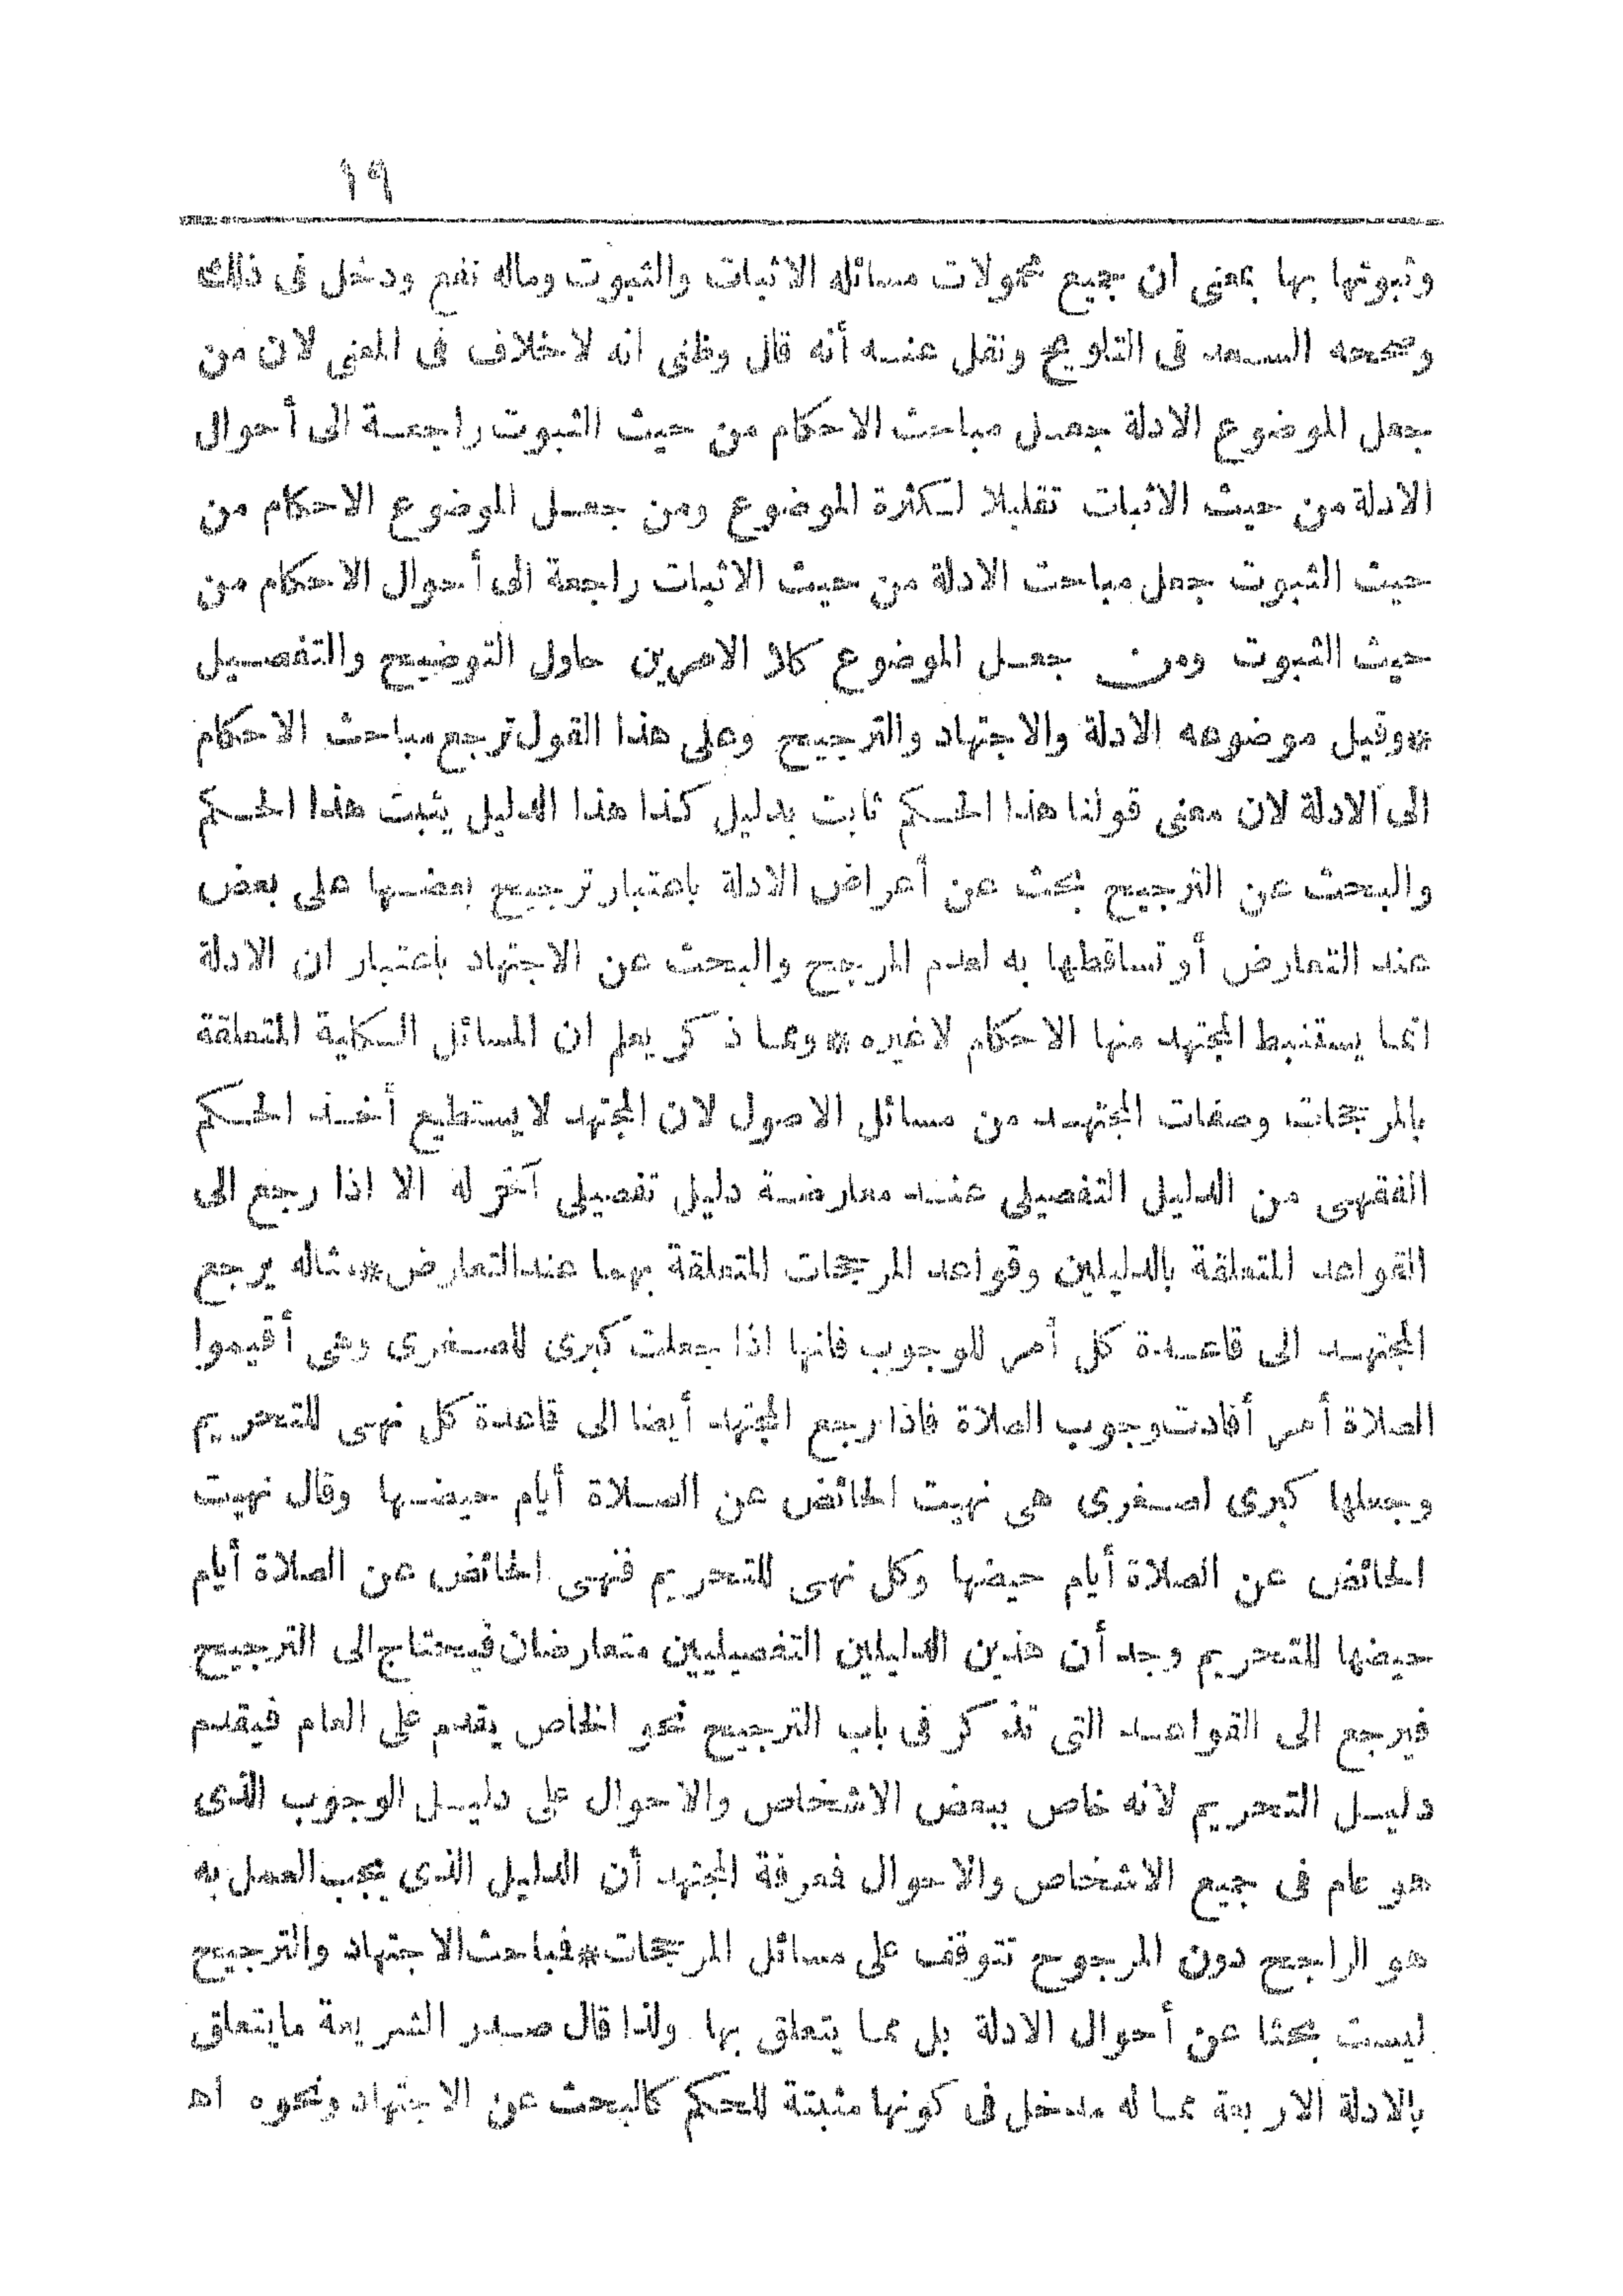 ١٩
وثبوتها بها بمعنى ان جميع محمولات مسائله الاثبات والثبوت وماله نفع ودخل فى ذلك
وصححه السعد فى التلويح ونقل عنه أنه قال وظنى انه لاخلاف فى المعنى لان من
جعل الموضوع الادلة جعل مباحث الاحكام من حيث الثبوت راجعة الى أحوال
الادلة من حيث الاثبات تقليلا لكثرة الموضوع ومن جعل الموضوع الاحكام من
حيث الثبوت جعل مباحث الادلة من حيث الاثبات راجعة الى أحوال الاحكام من
حيث الثبوت ومن جعل الموضوع كلا الامرين حاول التوضيح والتفصيل
*وقيل موضوعه الادلة والاجتهاد والترجيح وعلى هذا القول ترجع مباحث الاحكام
الى الادلة لان معنى قولنا هذا الحكم ثابت بدليل كذا هذا الدليل يثبت هذا الحكم
والبحث عن الترجيح بحث عن أعراض الادلة باعتبار ترجيح بعضها على بعض
عند التعارض أو تساقطها به لعدم المرجح والبحث عن الاجتهاد باعتبار ان الادلة
انما يستنبط المجتهد منها الاحكام لاغيره *ومما ذكر يعلم ان المسائل الكلية المتعلقة
بالمرجحات وصفات المجتهد من مسائل الاصول لان المجتهد لا يستطيع أخذ الحكم
الفقهى من الدليل التفصيلى عند معارضة دليل تفصيلى آخر له الا اذا رجع الى
القواعد المتعلقة بالدليلين وقواعد المرجحات المتعلقة بهما عند التعارض*مثاله يرجع
المجتهد الى قاعدة كل أمر للوجوب فانها اذا جعلت كبرى للصغرى وهى أقيموا
الصلاة أمر أفادت وجوب الصلاة فاذا رجع المجتهد أيضا الى قاعدة كل نهى للتحريم
وجعلها كبرى لصغرى هى نهيت الحائض عن الصلاة أيام حيضها وقال نهيت
الحائض عن الصلاة أيام حيضها وكل نهى للتحريم فنهى الحائض عن الصلاة أيام
حيضها للتحريم وجد أن هذين الدليلين التفصيليين متعارضان فيحتاج الى الترجيح
فيرجع الى القواعد التى تذكر فى باب الترجيح نحو الخاص يقدم على العام فيقدم
دليل التحريم لانه خاص ببعض الاشخاص والاحوال على دليل الوجوب الذى
هو عام فى جميع الاشخاص والاحوال فمعرفة المجتهد أن الدليل الذى يجب العمل به
هو الراجح دون المرجوح تتوقف على مسائل المرجحات*فمباحث الاجتهاد والترجيح
ليست بحثا عن أحوال الادلة بل مما يتعلق بها ولذا قال صدر الشريعة ما يتعلق
بالادلة الاربعة مما له مدخل فى كونها مثبتة للحكم كالبحث عن الاجتهاد ونحوه اه